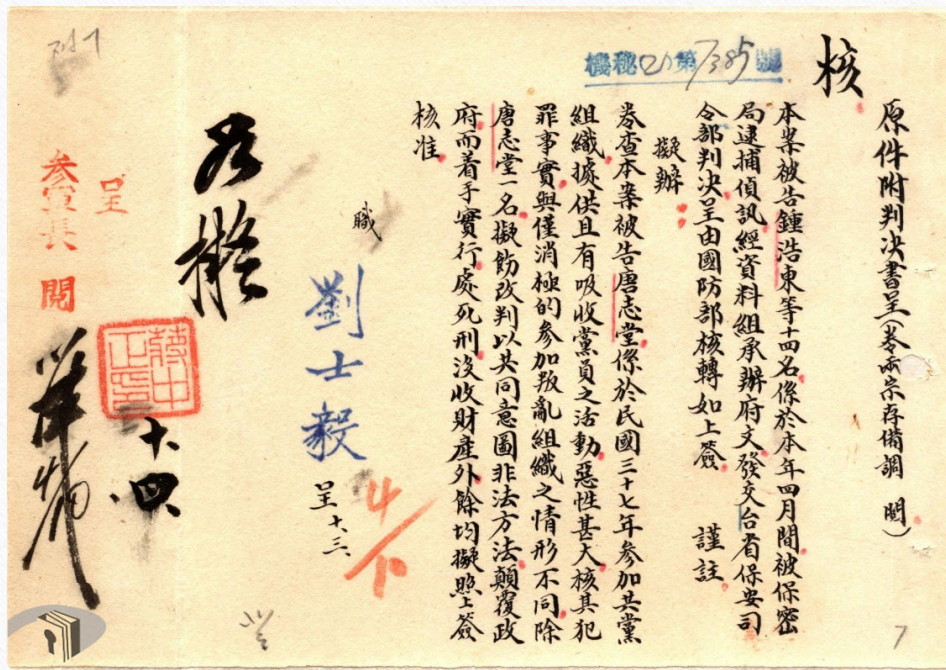 原件附判決書呈(卷兩宗存備調閱)
核
機秘(乙)第7385號
本案被告鍾浩東等十四名係於本年四月間被保密
局逮捕偵訊經資料組承辦府文發交台省保安司
令部判決呈由國防部核轉如上簽 謹註
擬辦
券查本案被告唐志堂係於民國三十七年參加共黨
組織據供且有吸收黨員之活動惡性甚大核其犯
罪事實與僅消極的參加叛亂組織之情形不同除
唐志堂一名擬飭改判以共同意圖非法方法顛覆政
府而着手實行處死刑沒收財產外餘均擬照上簽
核准
職
劉士毅
呈十、三
如擬
蔣中正印
十、四
呈
參軍長閱
7